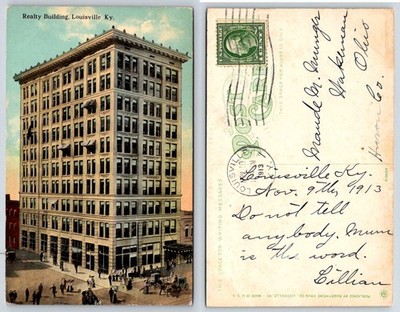 Realty Building, Louisville Ky.
Maude M. Munger
Wakeman
Huron Co.
Ohio
LOUISVILLE
1913
THIS SPACE FOR WRITING MESSAGES
Louisville Ky.
Nov. 9th, 1913
Do not tell
anybody. Mum
is the word.
Lillian